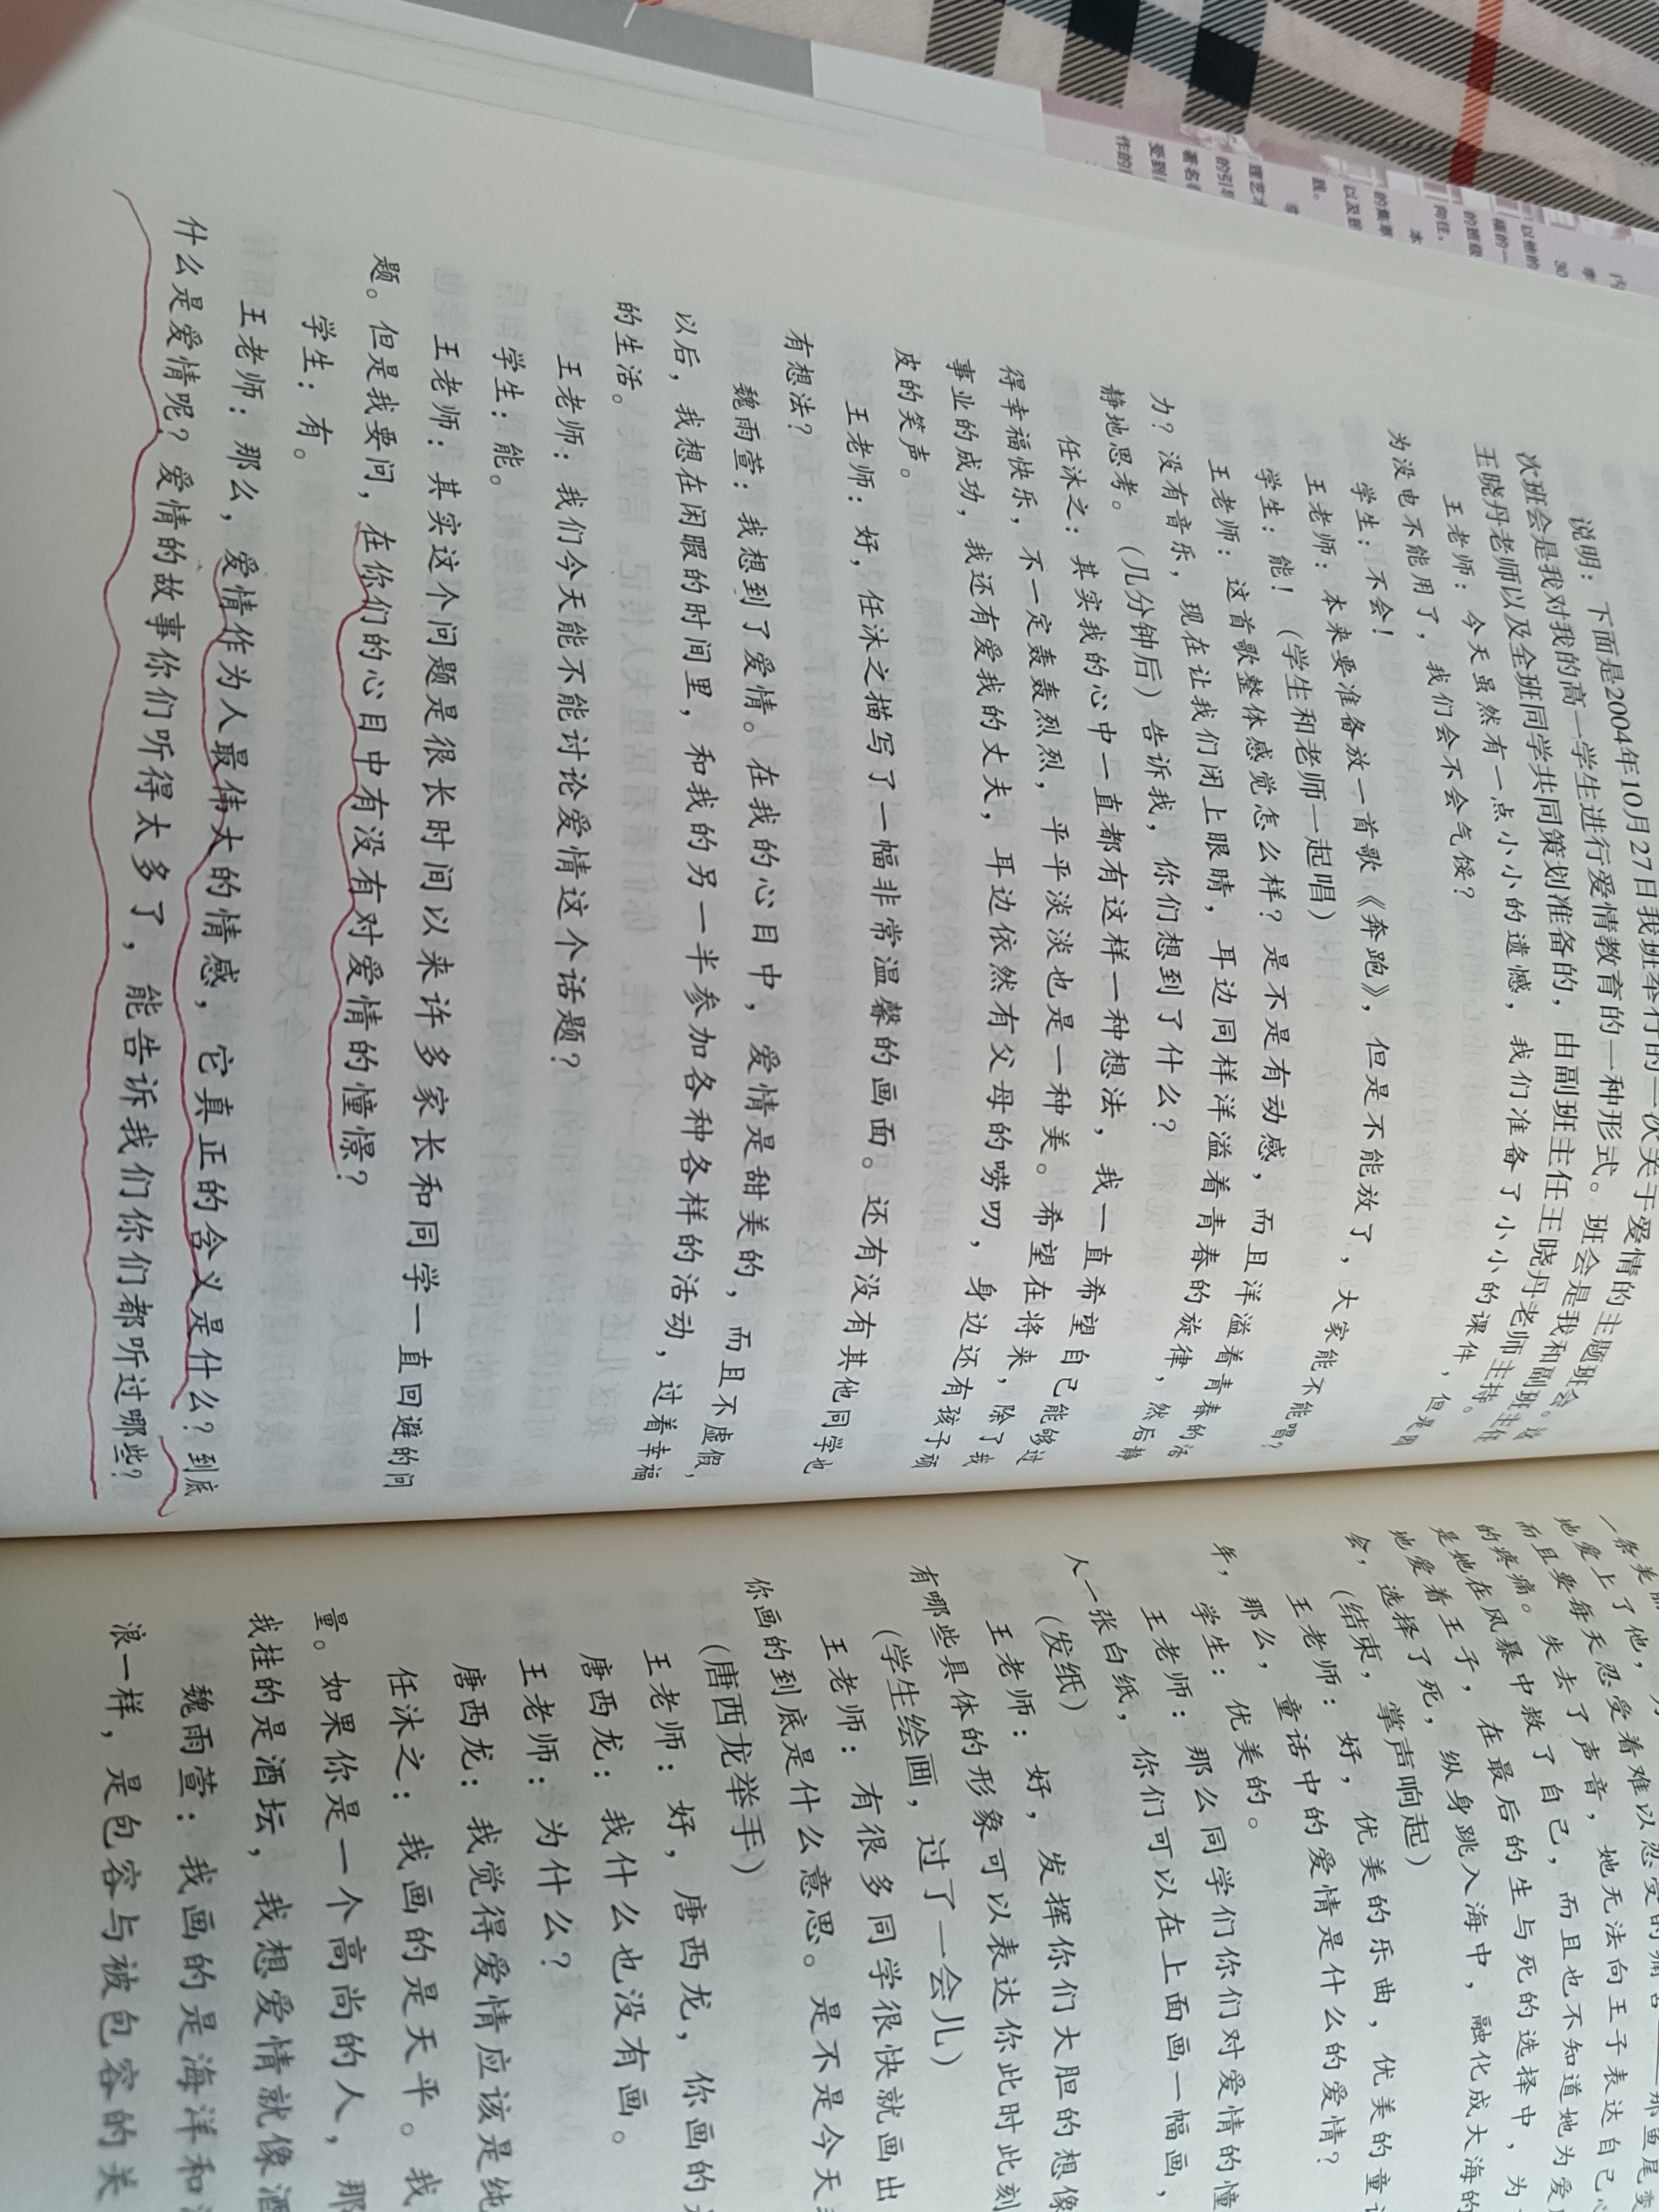 说明：下面是2004年10月27日我班举行的一次关于爱情的主题班会。这
次班会是我对我的高一学生进行爱情教育的一种形式。班会是我和副班主任
王晓丹老师以及全班同学共同策划准备的，由副班主任王晓丹老师主持。
王老师：今天虽然有一点小小的遗憾，我们准备了小小的课件，但是因
为没电不能用了，我们会不会气馁？
学生：不会！
王老师：本来要准备放一首歌《奔跑》，但是不能放了，大家能不能唱？
学生：能！（学生和老师一起唱）
王老师：这首歌整体感觉怎么样？是不是有动感，而且洋溢着青春的活
力？没有音乐，现在让我们闭上眼睛，耳边同样洋溢着青春的旋律，然后静
静地思考。（几分钟后）告诉我，你们想到了什么？
任沐之：其实我的心中一直都有这样一种想法，我一直希望自己能够过
得幸福快乐，不一定轰轰烈烈，平平淡淡也是一种美。希望在将来，除了我
事业的成功，我还有爱我的丈夫，耳边依然有父母的唠叨，身边还有孩子顽
皮的笑声。
王老师：好，任沐之描写了一幅非常温馨的画面。还有没有其他同学也
有想法？
魏雨萱：我想到了爱情。在我的心目中，爱情是甜美的，而且不虚假，
以后，我想在闲暇的时间里，和我的另一半参加各种各样的活动，过着幸福
的生活。
王老师：我们今天能不能讨论爱情这个话题？
学生：能。
王老师：其实这个问题是很长时间以来许多家长和同学一直回避的问
题。但是我要问，在你们的心目中有没有对爱情的憧憬？
学生：有。
王老师：那么，爱情作为人最伟大的情感，它真正的含义是什么？到底
什么是爱情呢？爱情的故事你们听得太多了，能告诉我们你们都听过哪些？
一条美丽
地爱上了他，
而且要每天忍受着难以忍受的痛苦——那鱼尾变
的疼痛。失去了声音，她无法向王子表达自己心
是她在风暴中救了自己，而且也不知道她为爱
地爱着王子，在最后的生与死的选择中，为
会，选择了死，纵身跳入海中，融化成大海的
（结束，掌声响起）
王老师：好，优美的乐曲，优美的童
年，那么，童话中的爱情是什么的爱情？
学生：优美的。
王老师：那么同学们你们对爱情的憧
人一张白纸，你们可以在上面画一幅画，
（发纸）
王老师：好，发挥你们大胆的想像
有哪些具体的形象可以表达你此时此刻
（学生绘画，过了一会儿）
王老师：有很多同学很快就画出
你画的到底是什么意思。是不是今天
（唐西龙举手）
王老师：好，唐西龙，你画的
唐西龙：我什么也没有画。
王老师：为什么？
唐西龙：我觉得爱情应该是纯
任沐之：我画的是天平。我
量。如果你是一个高尚的人，那
我挂的是酒坛，我想爱情就像酒
魏雨萱：我画的是海洋和
浪一样，是包容与被包容的关